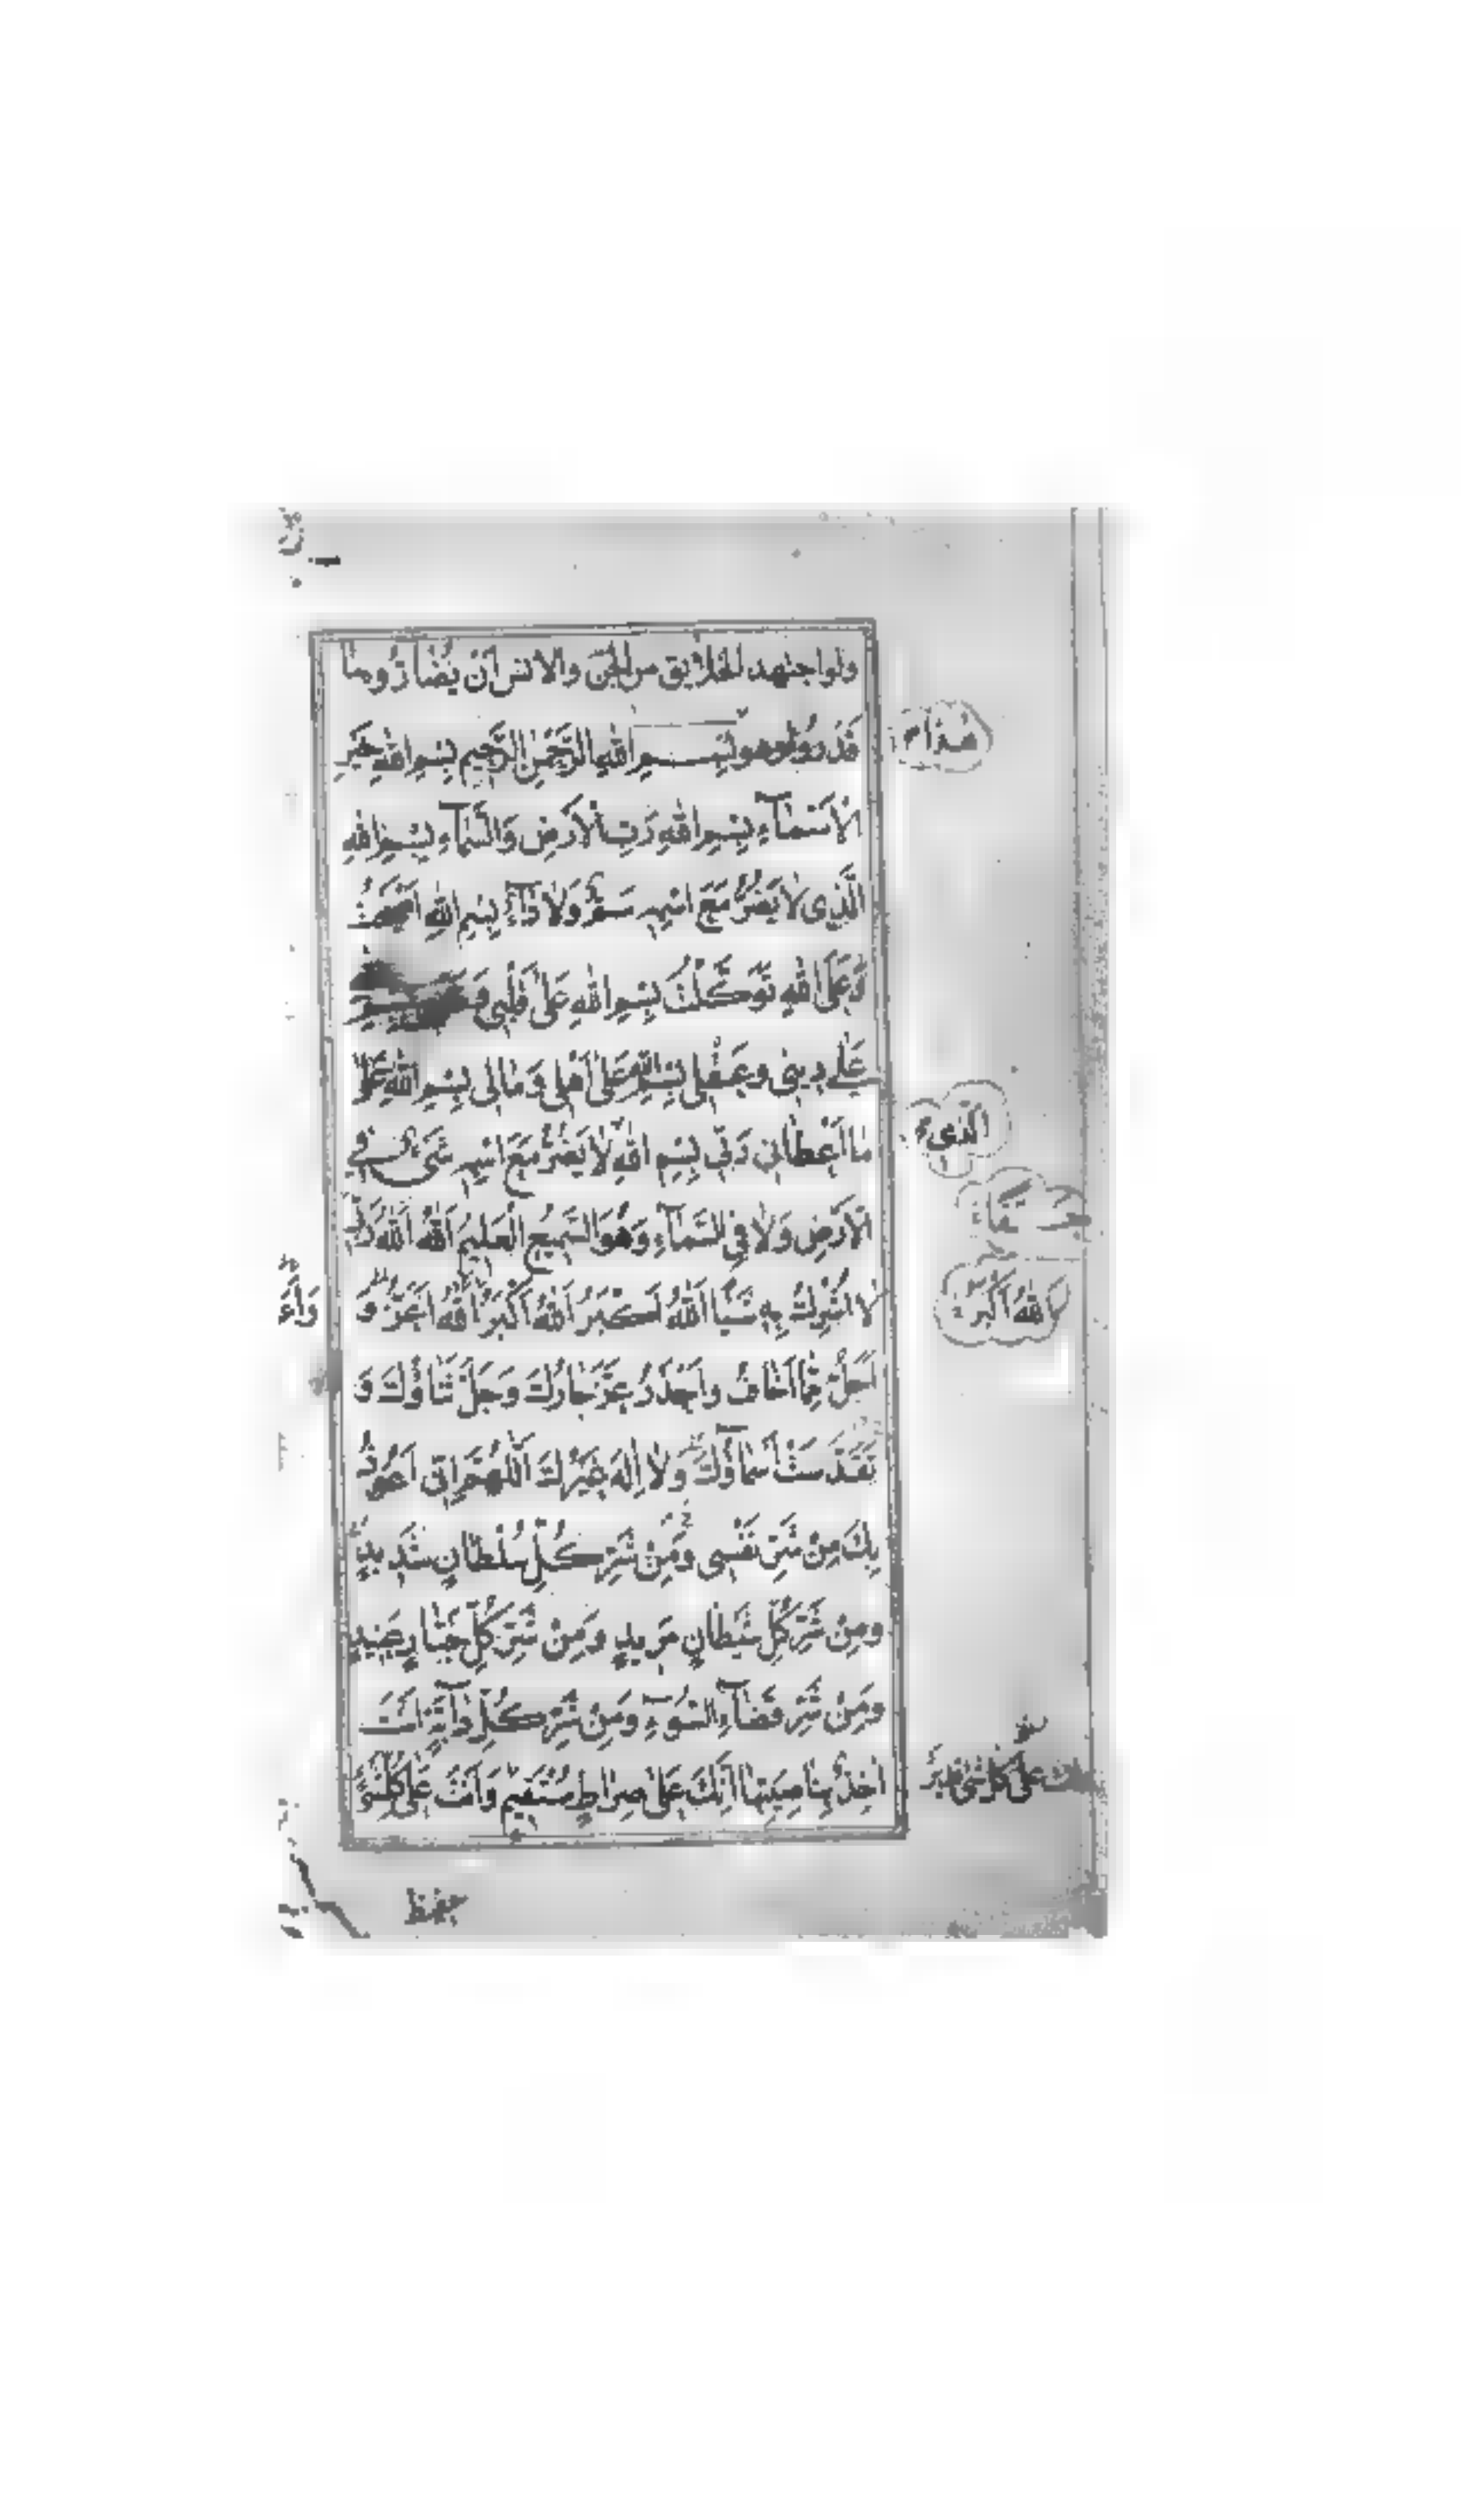 ولواجتهد الخلايق من الجن والانس ان يضاروه ما
قدروا وهو بسم الله الرحمن الرحيم بسم الله خير
الاسماء بسم الله رب الارض والسماء بسم الله
الذي لا يضر مع اسمه سم ولا داء بسم الله اصبحت
وعلى الله توكلت بسم الله على قلبي و
على ديني وعقلي بسم الله على اهلي ومالي بسم الله على
ما اعطاني ربي بسم الله لا يضر مع اسمه شيء في
الارض ولا في السماء وهو السميع العليم الله الله ربي
لا اشرك به شيئا الله اكبر الله اكبر الله اعز و
اجل مما اخاف واحذر عز جارك وجل ثناؤك و
تقدست اسماؤك ولا اله غيرك اللهم اني اعوذ
بك من شر نفسي ومن شر كل سلطان شديد
ومن شر كل شيطان مريد ومن شر كل جبار عنيد
ومن شر قضاء السوء ومن شر كل دابة انت
اخذ بناصيتها انك على صراط مستقيم وانت على كل شيء
هذا
الذي
الله اكبر
على كل شيء قدير
حفيظ